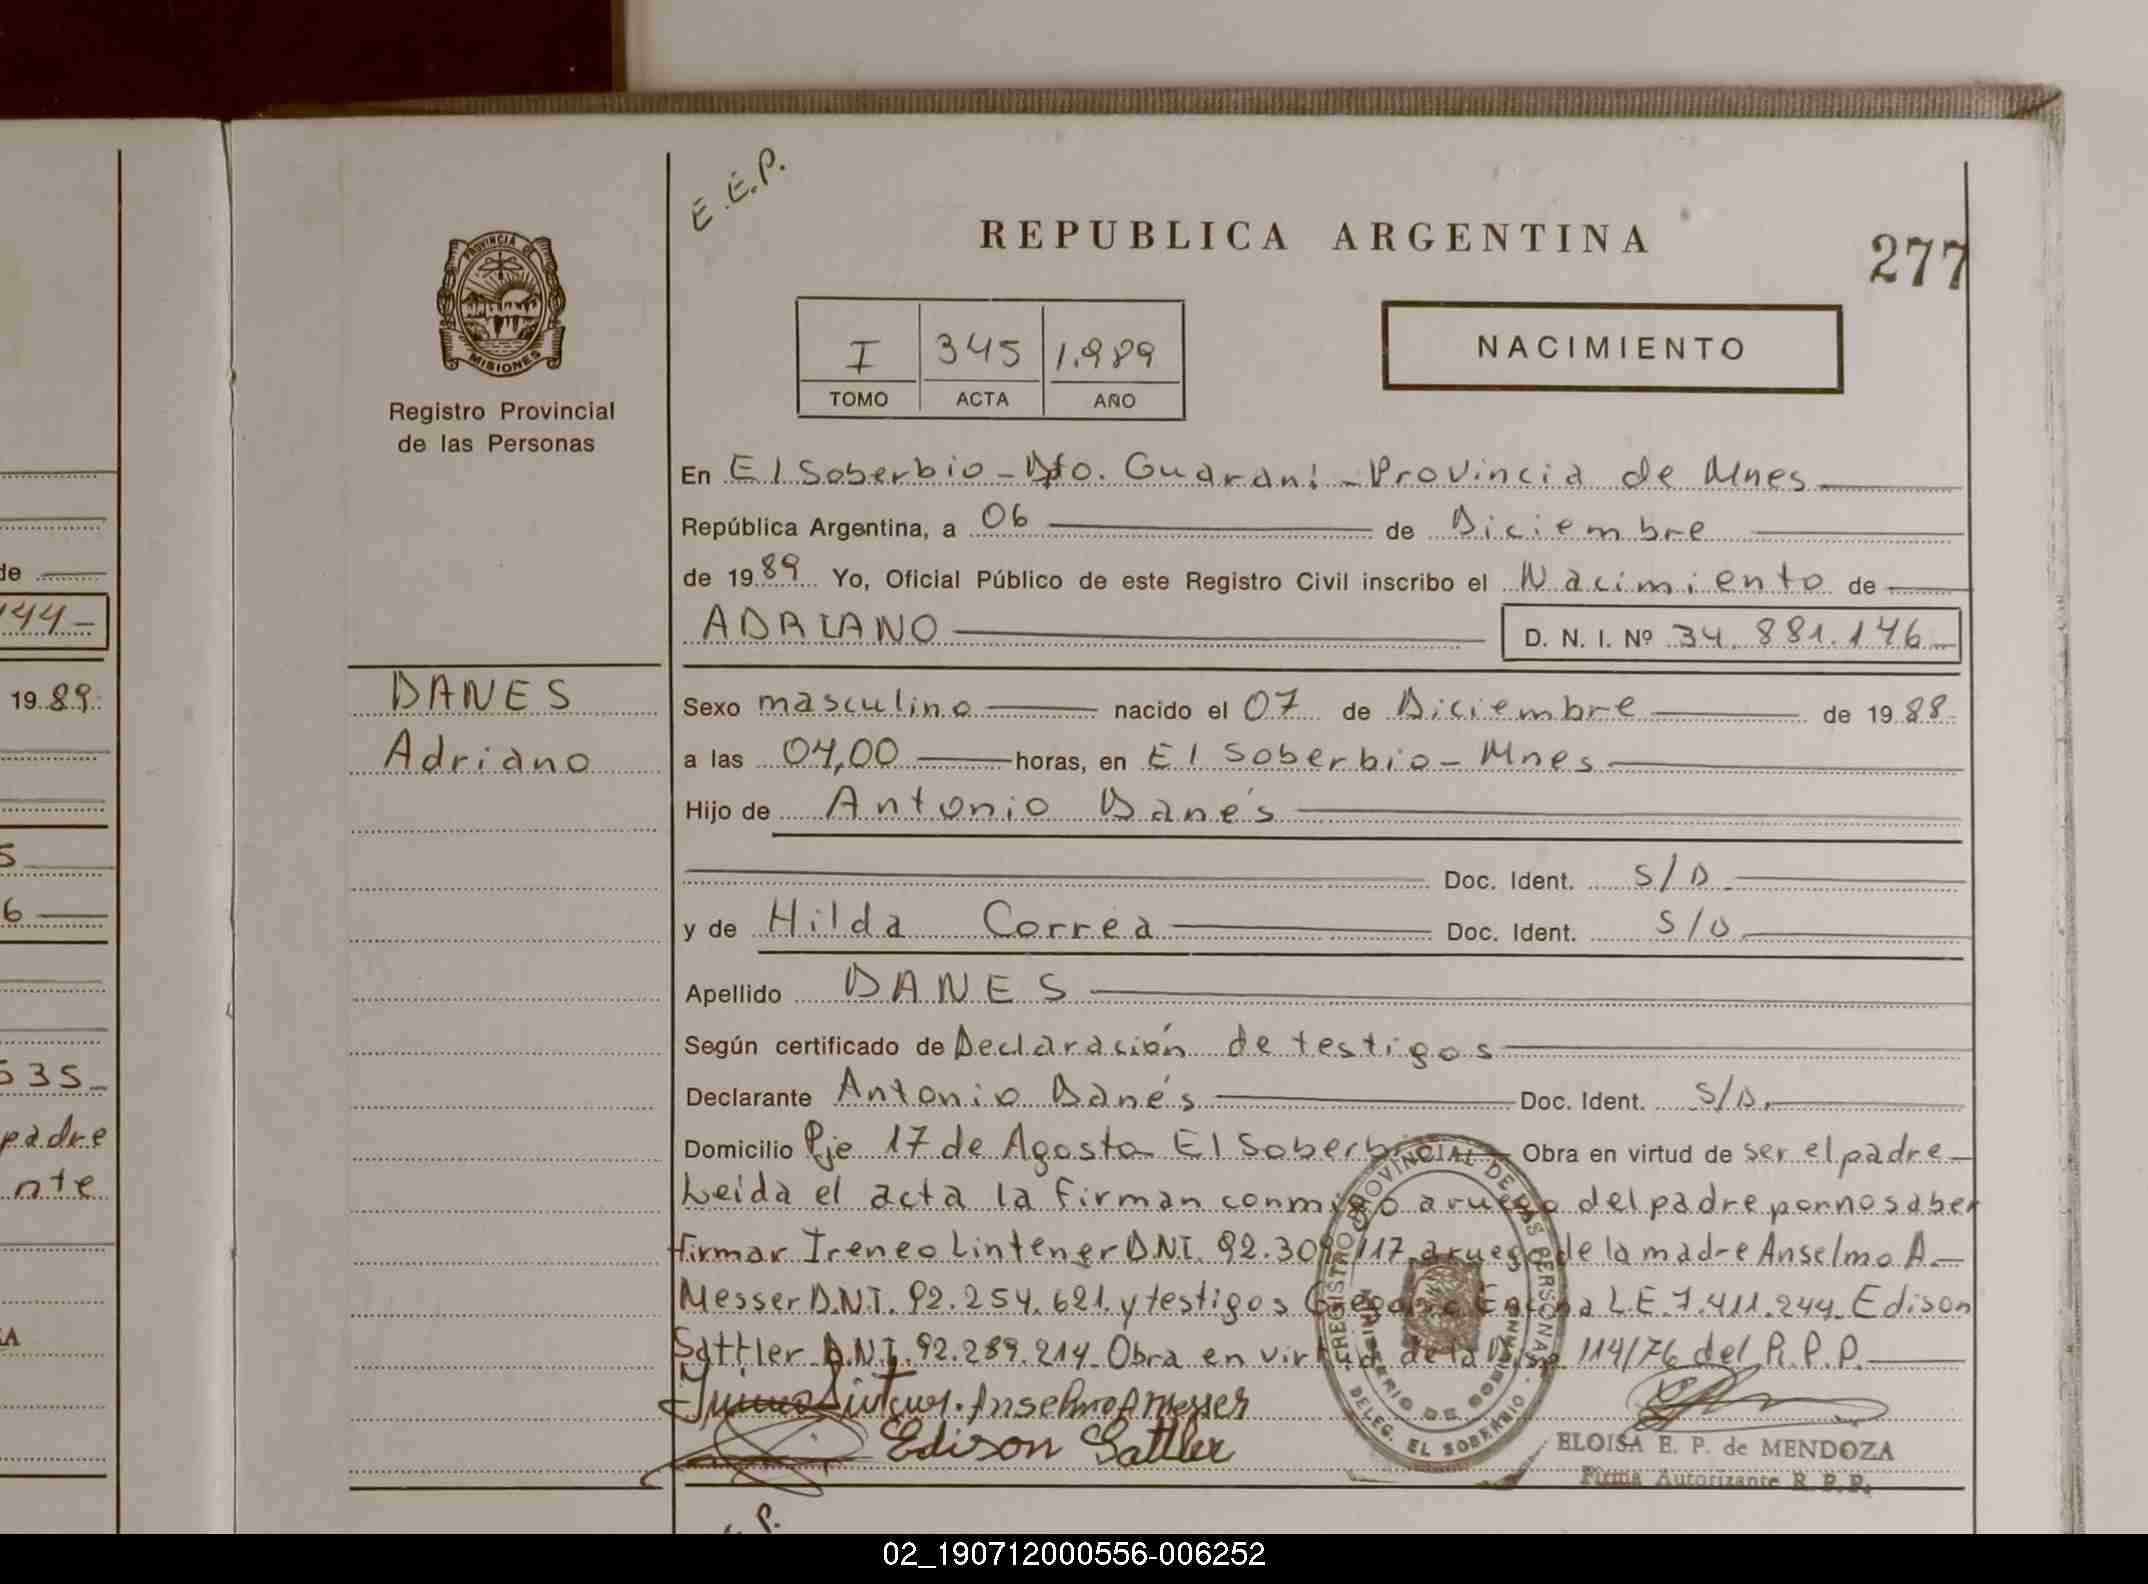 E.E.P.
REPUBLICA ARGENTINA
277
PROVINCIA DE
MISIONES
Registro Provincial
de las Personas
I 345 1.989
TOMO ACTA AÑO
NACIMIENTO
En El Soberbio - Dto. Guaraní - Provincia de Mnes
República Argentina, a 06 de Diciembre
de 1989 Yo, Oficial Público de este Registro Civil inscribo el Nacimiento de
ADRIANO D. N. I. Nº 34.881.146
DANES
Adriano
Sexo masculino nacido el 07 de Diciembre de 1988
a las 04,00 horas, en El Soberbio - Mnes
Hijo de Antonio Danés
Doc. Ident. S/D.
y de Hilda Correa Doc. Ident. S/D
Apellido DANES
Según certificado de Declaración de testigos
Declarante Antonio Danés Doc. Ident. S/D.
Domicilio Pje 17 de Agosto El Soberbio Obra en virtud de ser el padre
Leida el acta la firman conmigo a ruego del padre por no saber
firmar Ireneo Lintener D.N.I. 92.309.117 a ruego de la madre Anselmo A.
Messer D.N.I. 92.254.621 y testigos Gregorio Encina L.E. 7.411.244 Edison
Sattler D.N.I. 92.289.214 Obra en virtud de la Disp 114/76 del R.P.P.
Anselmo A Messer
Edison Sattler
REGISTRO PROVINCIAL DE LAS PERSONAS
MINISTERIO DE GOBIERNO
DELEG. EL SOBERBIO
ELOISA E. P. de MENDOZA
Firma Autorizante R. P. P.
de
144-
1989
5
6
535-
padre
nte
P.
02_190712000556-006252